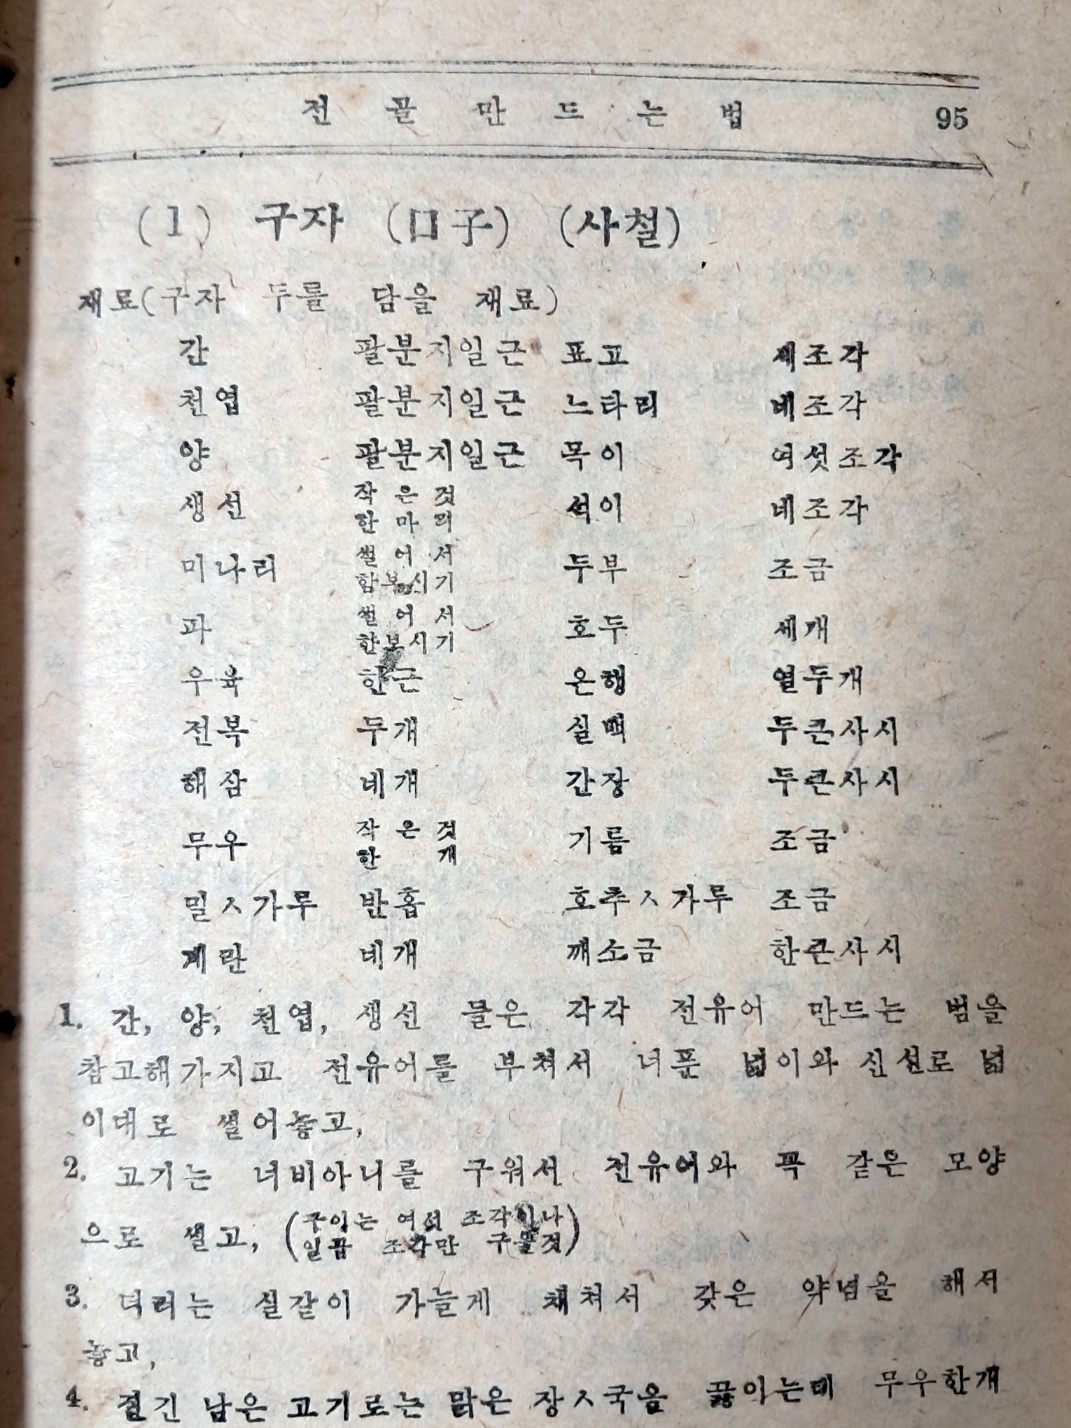 전골만드는법 95
(1) 구자 (口子) (사철)
재료(구자 두를 담을 재료)
간 팔분지일근 표고 세조각
천엽 팔분지일근 느타리 네조각
양 팔분지일근 목이 여섯조각
생선 작은것 한마리 석이 네조각
미나리 썰어서 함보시기 두부 조금
파 썰어서 한보시기 호두 세개
우육 한근 은행 열두개
전복 두개 실백 두큰사시
해삼 네개 간장 두큰사시
무우 작은것 한개 기름 조금
밀ㅅ가루 반홉 호추ㅅ가루 조금
계란 네개 깨소금 한큰사시
1. 간, 양, 천엽, 생선 들은 각각 전유어 만드는 법을
참고해가지고 전유어를 부쳐서 너푼 넓이와 신선로 넓
이대로 썰어놓고,
2. 고기는 너비아니를 구워서 전유어와 꼭 같은 모양
으로 썰고, (구이는 여섯 조각이나
일곱 조각만 구울것)
3. 더러는 실같이 가늘게 채쳐서 갖은 약념을 해서
놓고,
4. 절긴 남은 고기로는 맑은 장ㅅ국을 끓이는데 무우한개